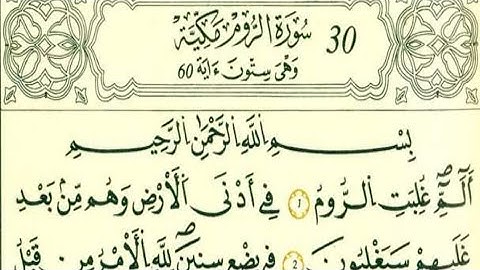 سُورَةُ الرُّومِ مَكِّيَّةٌ 30
وَهْيَ سِتُّونَ ءَايَةً 60
بِسْمِ اِللَّهِ اِلرَّحْمَٰنِ اِلرَّحِيمِ
أَلَٓمِّٓۖ غُلِبَتِ اِلرُّومُ 1 فِےٓ أَدْنَى اَلَارْضِ وَهُم مِّنۢ بَعْدِ
غَلَبِهِمْ سَيَغْلِبُونَ 2 فِے بِضْعِ سِنِينَۖ لِلهِ اِلَامْرُ مِن قَبْلُ